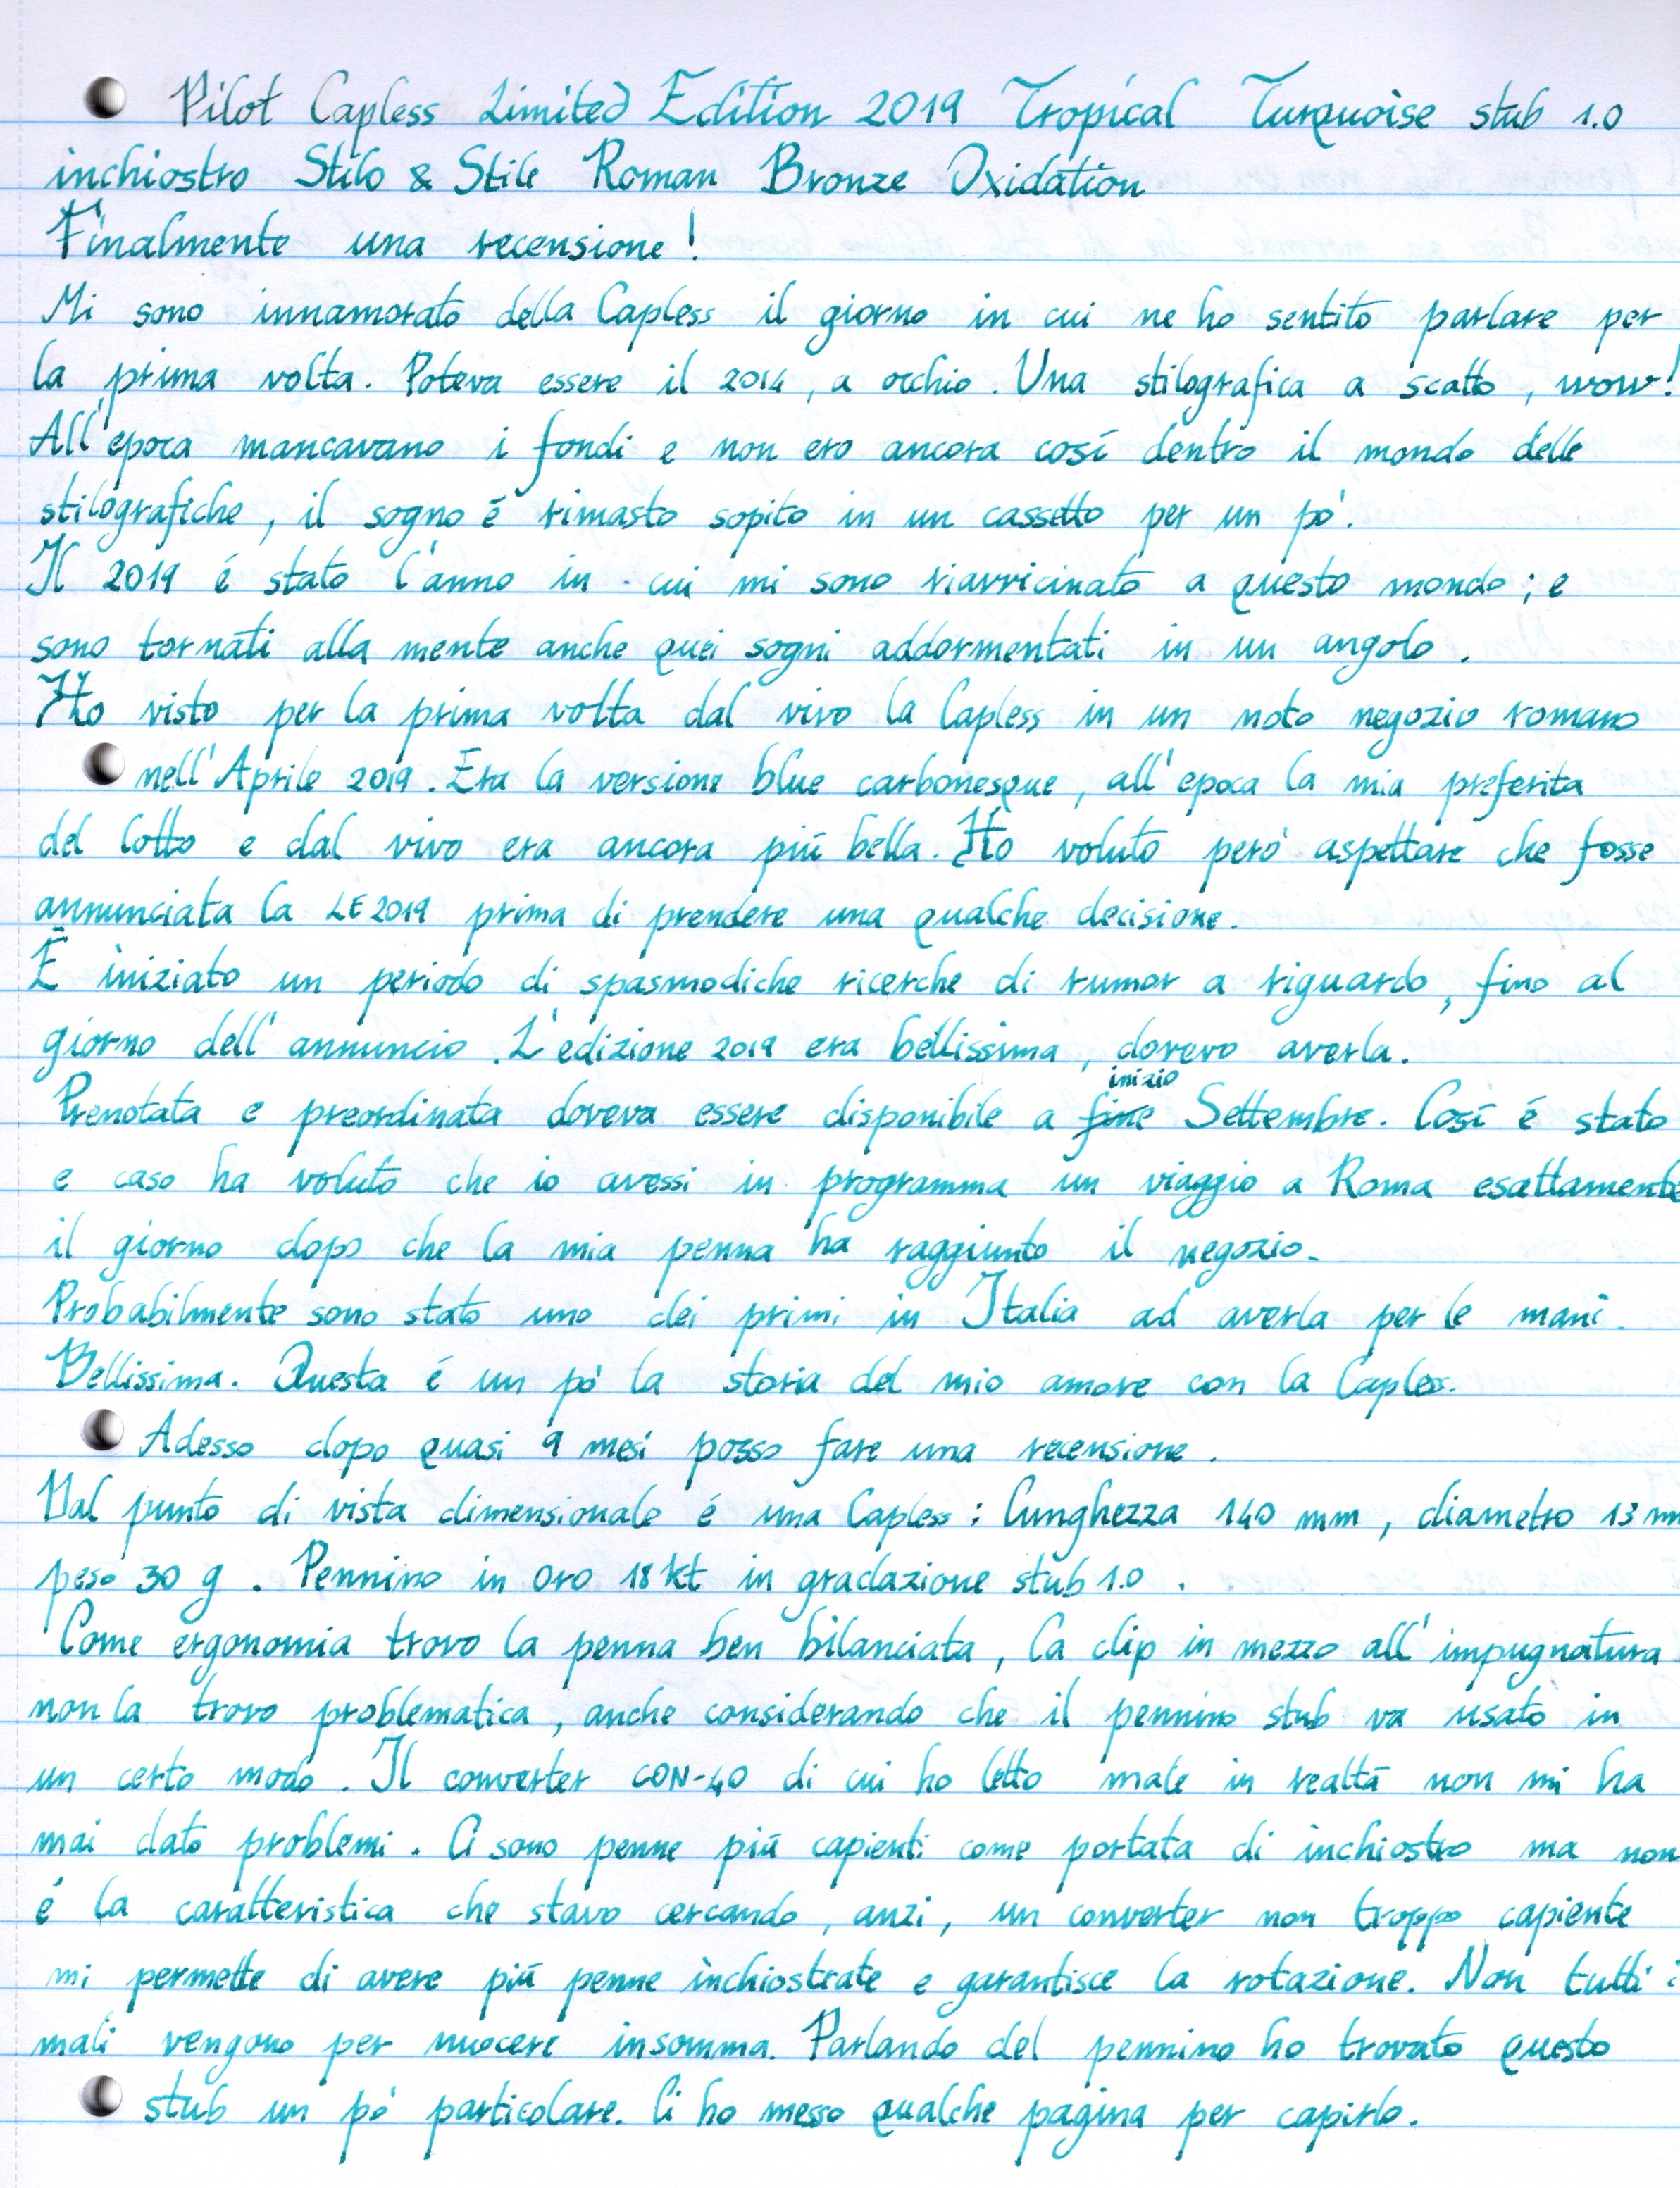 Pilot Capless Limited Edition 2019 Tropical Turquoise stub 1.0
inchiostro Stilo & Stile Roman Bronze Oxidation
Finalmente una recensione!
Mi sono innamorato della Capless il giorno in cui ne ho sentito parlare per
la prima volta. Poteva essere il 2014, a occhio. Una stilografica a scatto, wow!
All'epoca mancavano i fondi e non ero ancora così dentro il mondo delle
stilografiche, il sogno é rimasto sopito in un cassetto per un pò.
Il 2019 é stato l'anno in cui mi sono riavvicinato a questo mondo; e
sono tornati alla mente anche quei sogni addormentati in un angolo.
Ho visto per la prima volta dal vivo la Capless in un noto negozio romano
nell'Aprile 2019. Era la versione blue carbonesque, all'epoca la mia preferita
del lotto e dal vivo era ancora più bella. Ho voluto però aspettare che fosse
annunciata la LE 2019 prima di prendere una qualche decisione.
É iniziato un periodo di spasmodiche ricerche di rumor a riguardo, fino al
giorno dell'annuncio. L'edizione 2019 era bellissima, dovevo averla.
Prenotata e preordinata doveva essere disponibile a fine inizio Settembre. Così é stato
e caso ha voluto che io avessi in programma un viaggio a Roma esattamente
il giorno dopo che la mia penna ha raggiunto il negozio.
Probabilmente sono stato uno dei primi in Italia ad averla per le mani.
Bellissima. Questa é un pò la storia del mio amore con la Capless.
Adesso dopo quasi 9 mesi posso fare una recensione.
Dal punto di vista dimensionale é una Capless: lunghezza 140 mm, diametro 13 mm
peso 30 g. Pennino in oro 18 kt in gradazione stub 1.0.
Come ergonomia trovo la penna ben bilanciata, la clip in mezzo all'impugnatura
non la trovo problematica, anche considerando che il pennino stub va usato in
un certo modo. Il converter CON-40 di cui ho letto male in realtà non mi ha
mai dato problemi. Ci sono penne più capienti come portata di inchiostro ma non
é la caratteristica che stavo cercando, anzi, un converter non troppo capiente
mi permette di avere più penne inchiostrate e garantisce la rotazione. Non tutti i
mali vengono per nuocere insomma. Parlando del pennino ho trovato questo
stub un pò particolare. Ci ho messo qualche pagina per capirlo.